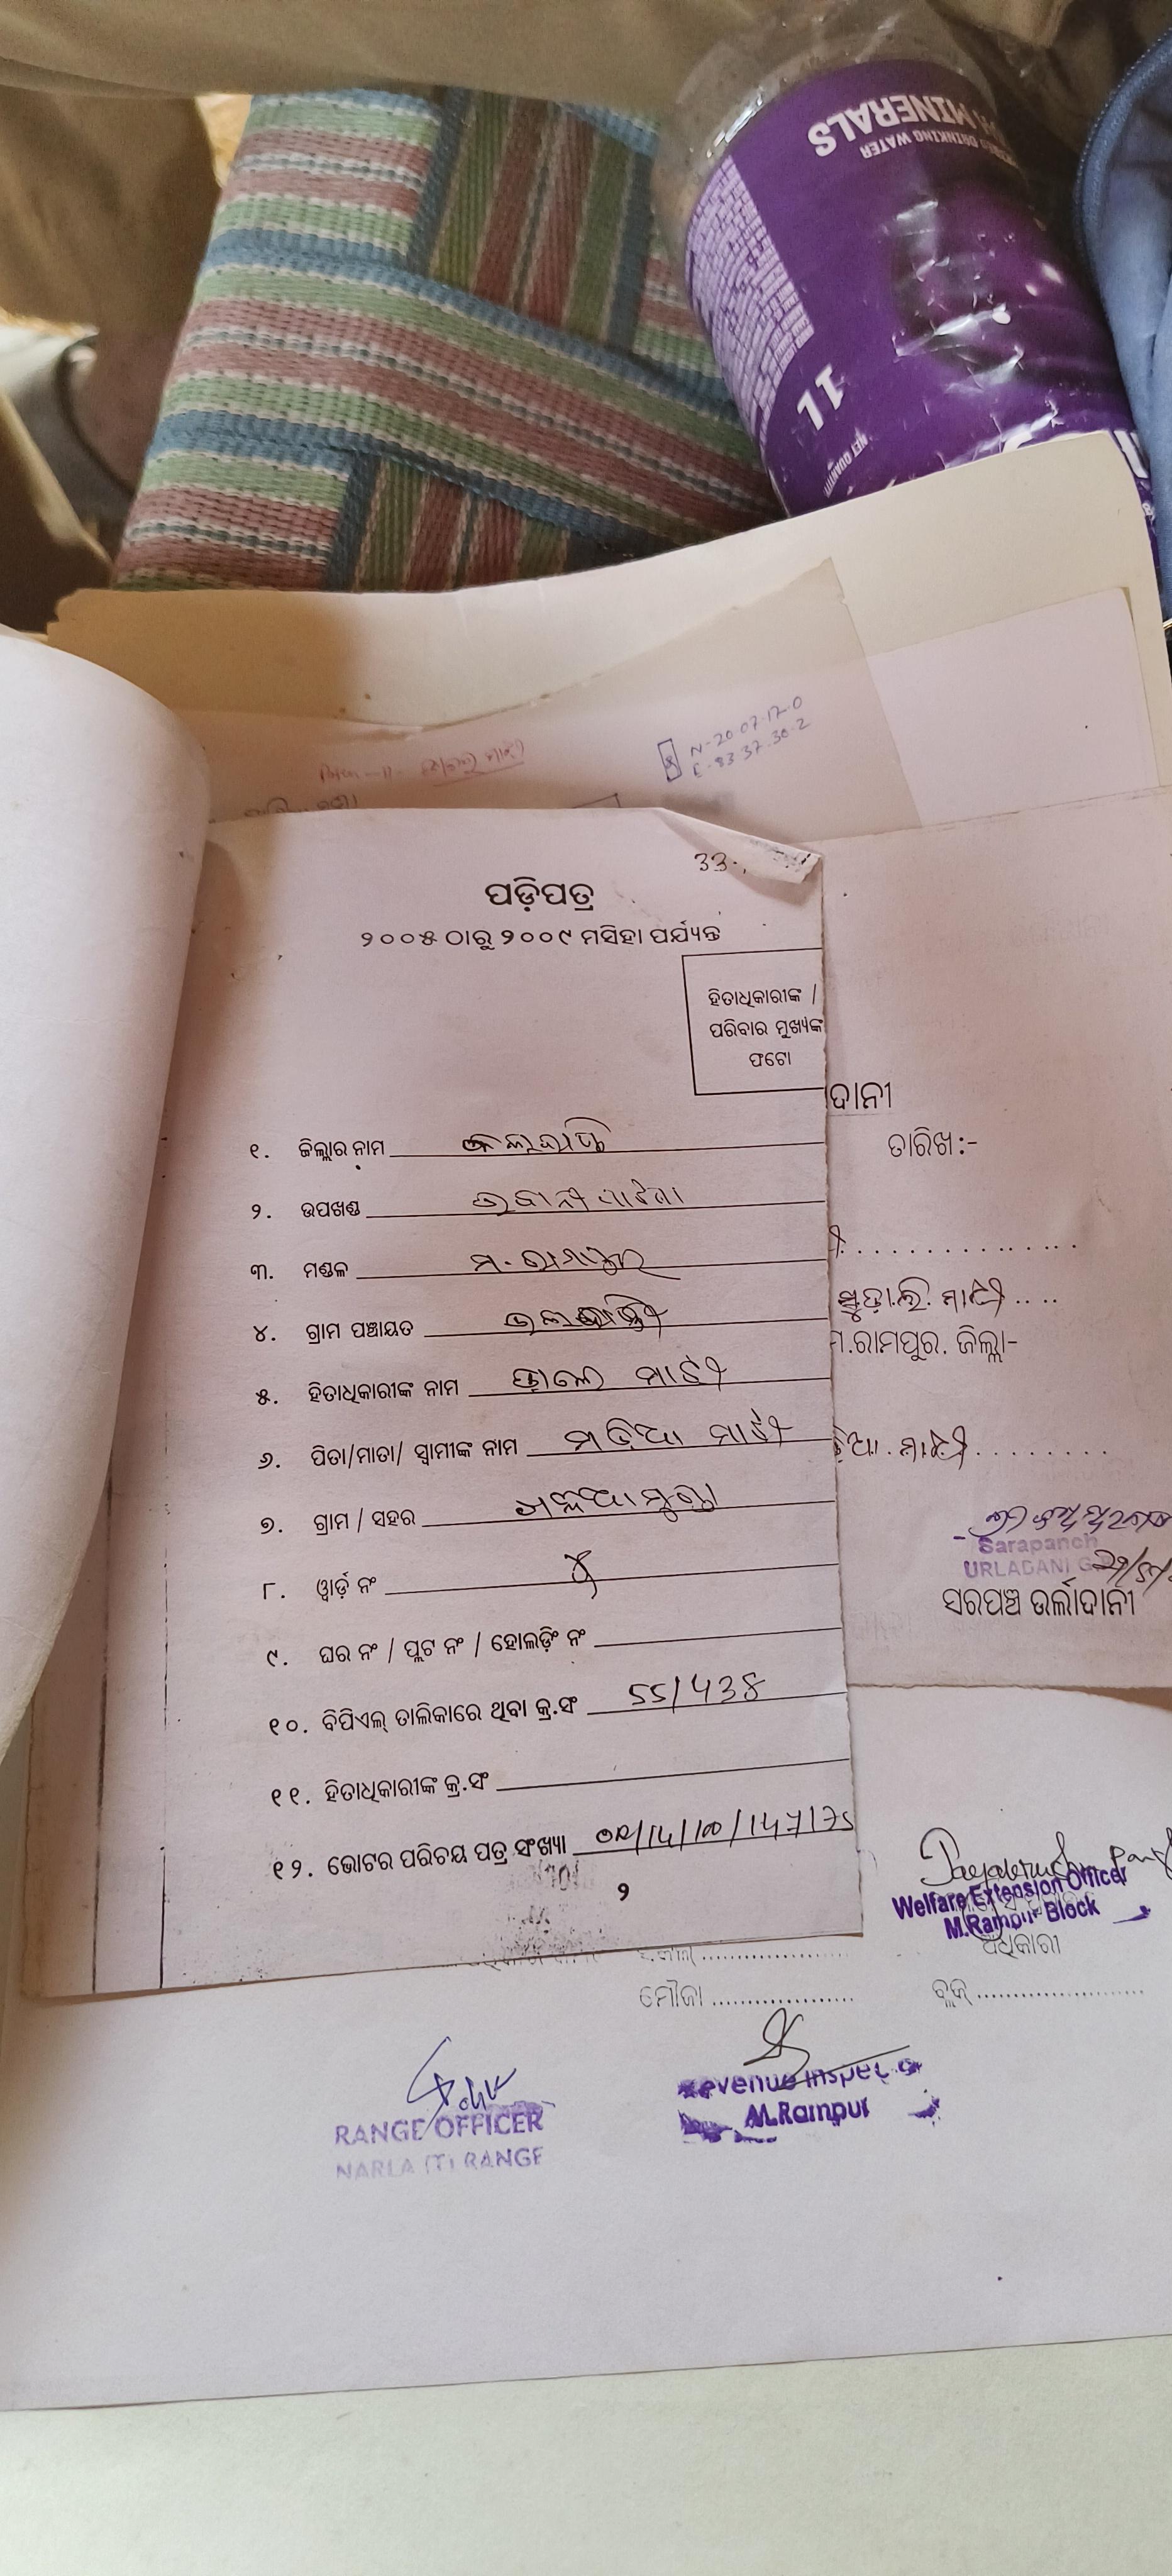 MINERALS
DRINKING WATER
1L
NET QUANTITY
N-20-07-12.0
E-83-37-30.2
33
ପଡ଼ିପତ୍ର
୨୦୦୫ ଠାରୁ ୨୦୦୯ ମସିହା ପର୍ଯ୍ୟନ୍ତ
ହିତାଧିକାରୀଙ୍କ /
ପରିବାର ମୁଖ୍ୟଙ୍କ
ଫଟୋ
୧. ଜିଲ୍ଲାର ନାମ କଳାହାଣ୍ଡି
୨. ଉପଖଣ୍ଡ ଭବାନୀପାଟଣା
୩. ମଣ୍ଡଳ ମ. ରାମପୁର
୪. ଗ୍ରାମ ପଞ୍ଚାୟତ
୫. ହିତାଧିକାରୀଙ୍କ ନାମ ମାଝୀ
୬. ପିତା/ମାତା/ ସ୍ୱାମୀଙ୍କ ନାମ ମାଝୀ
୭. ଗ୍ରାମ / ସହର
୮. ୱାର୍ଡ଼ ନଂ ୪
୯. ଘର ନଂ / ପ୍ଲଟ ନଂ / ହୋଲଡ଼ିଂ ନଂ
୧୦. ବିପିଏଲ୍ ତାଲିକାରେ ଥିବା କ୍ର.ସଂ 55/438
୧୧. ହିତାଧିକାରୀଙ୍କ କ୍ର.ସଂ
୧୨. ଭୋଟର ପରିଚୟ ପତ୍ର ସଂଖ୍ୟା
୨
ଦାନୀ
ତାରିଖ:-
ମାଝୀ
ମ.ରାମପୁର. ଜିଲ୍ଲା-
ମାଝୀ
Sarapanch
URLADANI
ସରପଞ୍ଚ ଉର୍ଲାଦାନୀ
Welfare Extension Officer
M.Rampur Block
ଅଧିକାରୀ
ମୌଜା
ବ୍ଲକ୍
RANGE OFFICER
NARLA (T) RANGE
Revenue Inspec
M.Rampur